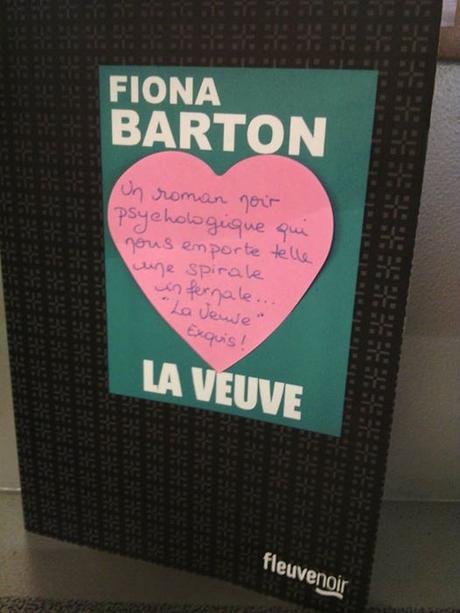 FIONA
BARTON
Un roman noir
psychologique qui
nous emporte telle
une spirale
infernale...
"La Veuve"
Exquis!
LA VEUVE
fleuvenoir